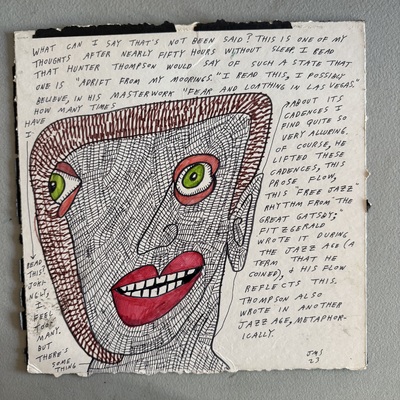 WHAT CAN I SAY THAT'S NOT BEEN SAID? THIS IS ONE OF MY
THOUGHTS AFTER NEARLY FIFTY HOURS WITHOUT SLEEP. I READ
THAT HUNTER THOMPSON WOULD SAY OF SUCH A STATE THAT
ONE IS "ADRIFT FROM MY MOORINGS." I READ THIS, I POSSIBLY
BELIEVE, IN HIS MASTERWORK "FEAR AND LOATHING IN LAS VEGAS."
HOW MANY TIMES
HAVE
I
READ
THIS?
JOKI-
NGLY,
I
FEEL
TOO
MANY.
BUT
THERE'S
SOME
THING
ABOUT ITS
CADENCES I
FIND QUITE SO
VERY ALLURING.
OF COURSE, HE
LIFTED THESE
CADENCES, THIS
PROSE FLOW,
THIS "FREE JAZZ"
RHYTHM FROM "THE
GREAT GATSBY;"
FITZGERALD
WROTE IT DURING
THE JAZZ AGE (A
TERM THAT HE
COINED), & HIS FLOW
REFLECTS THIS.
THOMPSON ALSO
WROTE IN ANOTHER
JAZZ AGE, METAPHOR-
ICALLY.
23